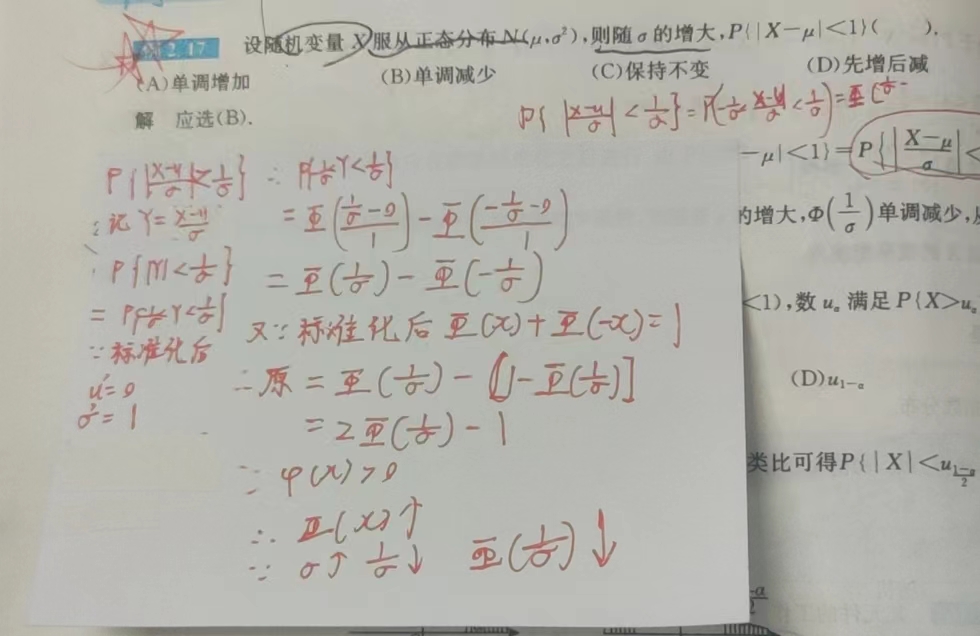 例2.17 设随机变量X服从正态分布N(μ,σ²),则随σ的增大,P{|X-μ|<1}( ).
(A)单调增加 (B)单调减少 (C)保持不变 (D)先增后减
P{|X-μ/σ|<1/σ}=P{-1/σ<X-μ/σ<1/σ}=Φ(1/σ-
解 应选(B).
-μ|<1}=P{|X-μ/σ|<
的增大,Φ(1/σ)单调减少,
<1),数uα满足P{X>uα
(D)u1-α
类比可得P{|X|<u1-α/2
P{|X-μ/σ|<1/σ}
记Y=X-μ/σ
P{|Y|<1/σ}
=P{-1/σ<Y<1/σ}
∵标准化后
μ=0
σ=1
∴P{-1/σ<Y<1/σ}
=Φ(1/σ-0/1)-Φ(-1/σ-0/1)
=Φ(1/σ)-Φ(-1/σ)
又∵标准化后Φ(x)+Φ(-x)=1
∴原=Φ(1/σ)-[1-Φ(1/σ)]
=2Φ(1/σ)-1
∵φ(x)>0
∴Φ(x)↑
∵σ↑ 1/σ↓ Φ(1/σ)↓